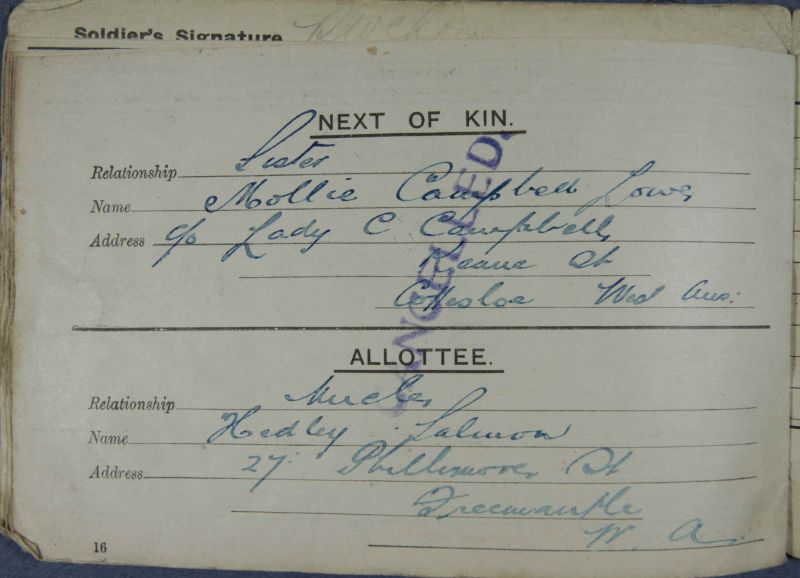 Soldier's Signature
NEXT OF KIN.
Relationship Sister
Name Mollie Campbell Lowe
Address c/o Lady C Campbell
Keane St
Cottesloe West Aus:
CANCELLED.
ALLOTTEE.
Relationship Uncle
Name Hedley Salmon
Address 27 Phillimore St
Freemantle
W. A.
16